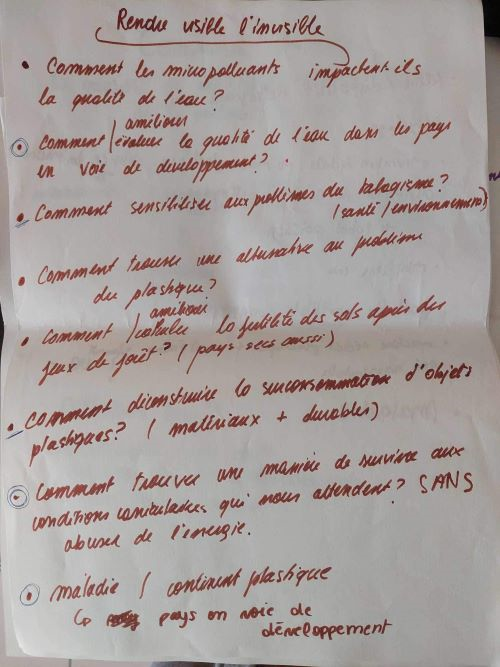 Rendre visible l'invisible
• Comment les micropolluants impactent-ils
la qualité de l'eau?
améliorer
• Comment / évaluer la qualité de l'eau dans les pays
en voie de développement?
• Comment sensibiliser aux problèmes du tabagisme?
(santé / environnement)
• Comment trouver une alternative au problème
du plastique?
améliorer
• Comment / calculer la fertilité des sols après des
feux de forêt? (pays secs aussi)
• Comment déconstruire la surconsommation d'objets
plastiques? (matériaux + durables)
• Comment trouver une manière de survivre aux
conditions caniculaires qui nous attendent? SANS
abuser de l'énergie.
• maladie / continent plastique
↳ pays en voie de
développement